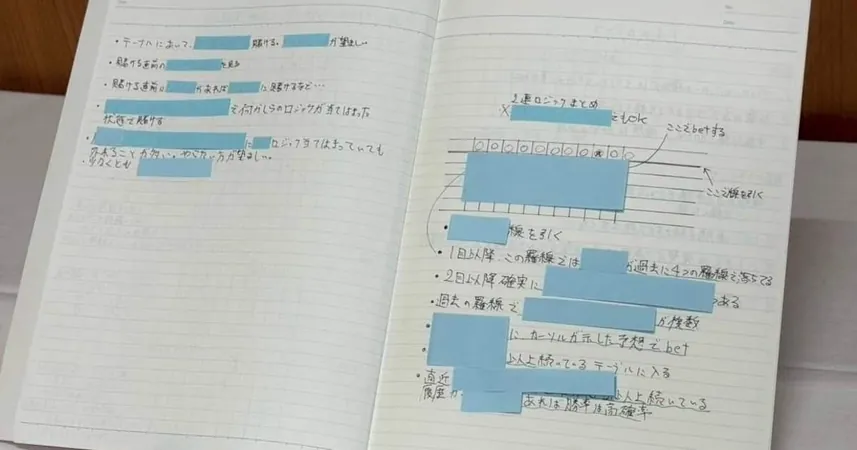 ・テーブルにおいて、 賭ける。 が望ましい
・賭ける直前の を見る
・賭ける直前に があれば に賭けるなど…
・ でイナガシラのロジックが当てはまった
状態で賭ける
・ に ロジック当てはまっていても
外れることが多い。やらない方が望ましい。
・少なくとも
2連ロジックまとめ
× でもOK
ここでbetする
ここで線を引く
・ 線を引く
・1目以降、この罫線では が過去に4つの罫線で落ちてる
・2目以降確実に ある
・過去の罫線で が複数
・ に、カーソルが示した予想でbet
・ 以上続いているテーブルに入る
・直近 以上続いている
履歴が あれば勝率は高確率